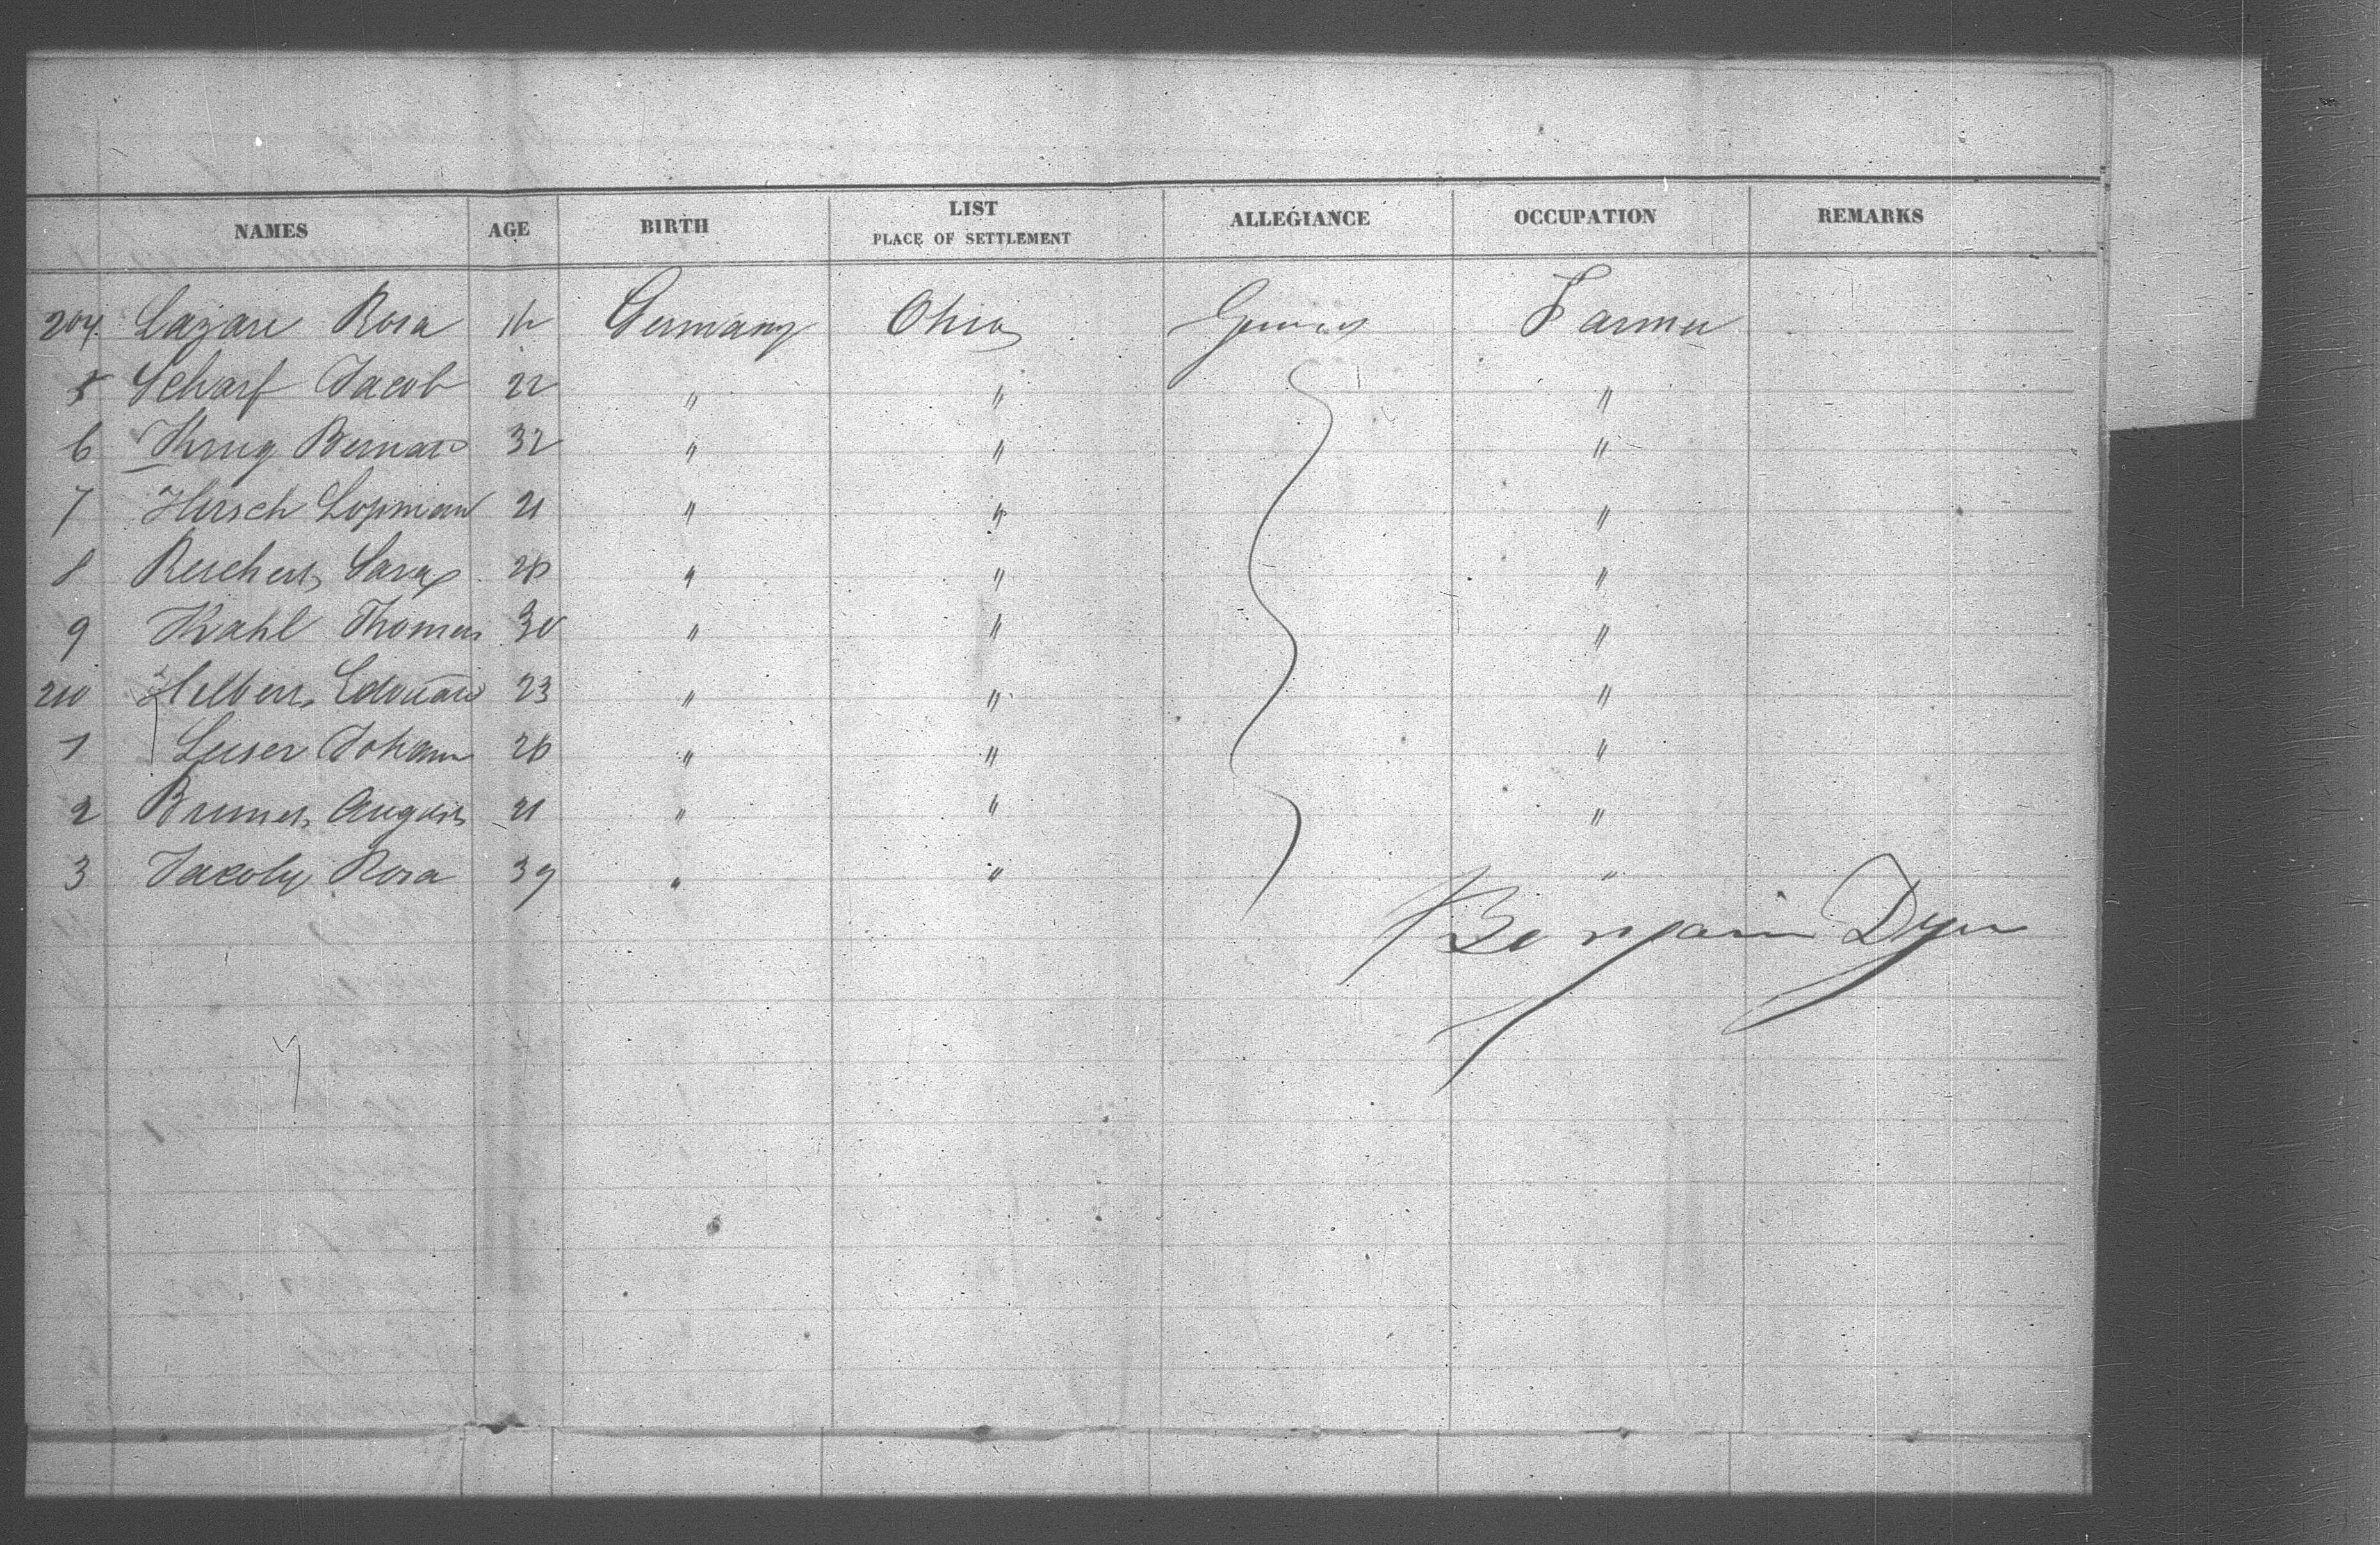 NAMES AGE BIRTH LIST PLACE OF SETTLEMENT ALLEGIANCE OCCUPATION REMARKS
204 Lazare Rosa Germany Ohio Farmer
5 Scharf Jacob 22 " " "
6 Krug Bernard 32 " " "
7 Hirsch Lopman 21 " " "
8 Reichert Sara " " "
9 Kahl Thomas 30 " " "
210 Edouard 23 " " "
1 Leiser Johann " " "
2 August 21 " " "
3 Jacoby Rosa 39 " " "
Benjamin